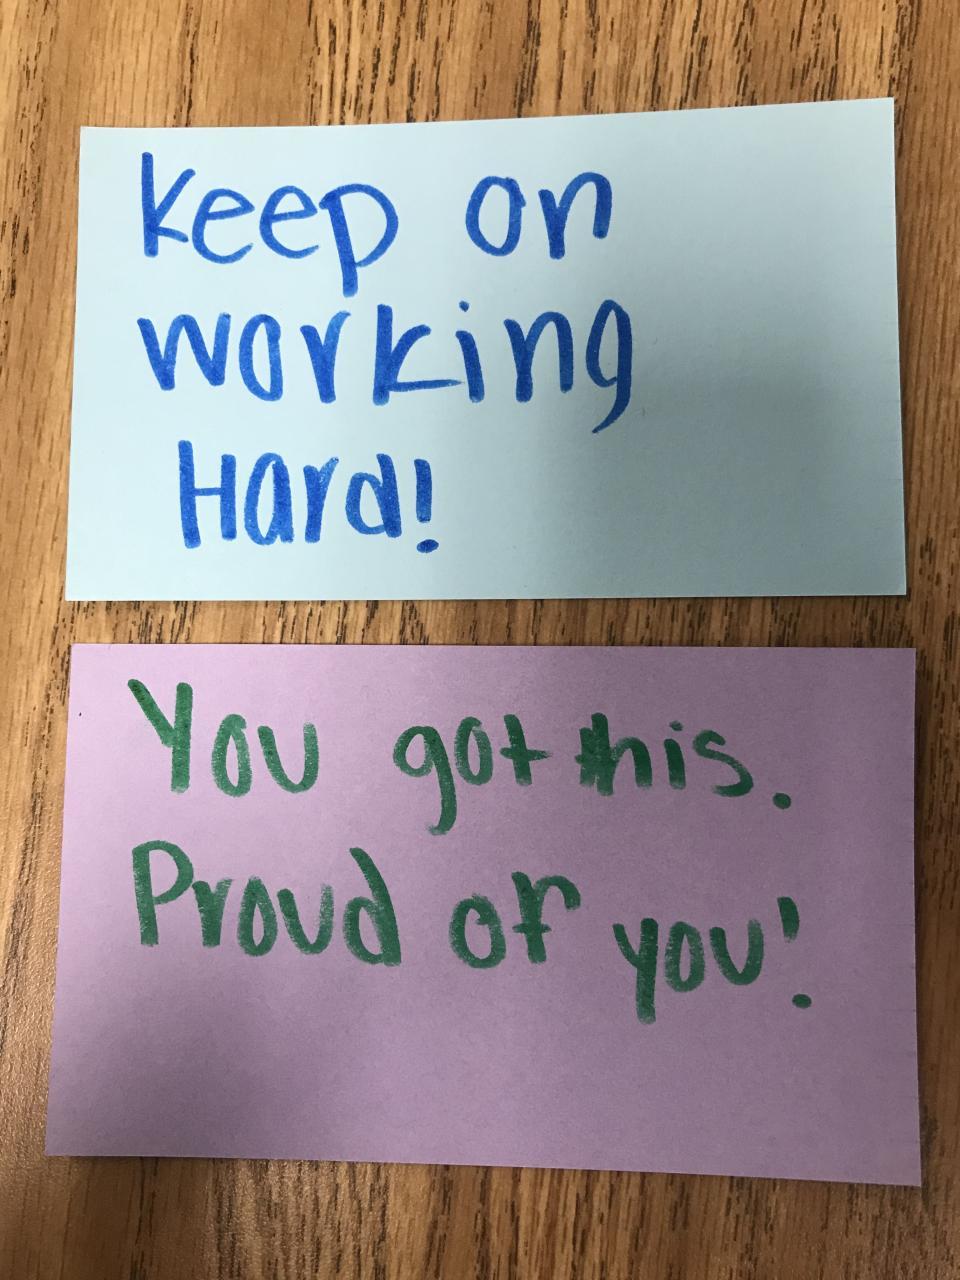 keep on
working
Hard!
You got this.
Proud of you!